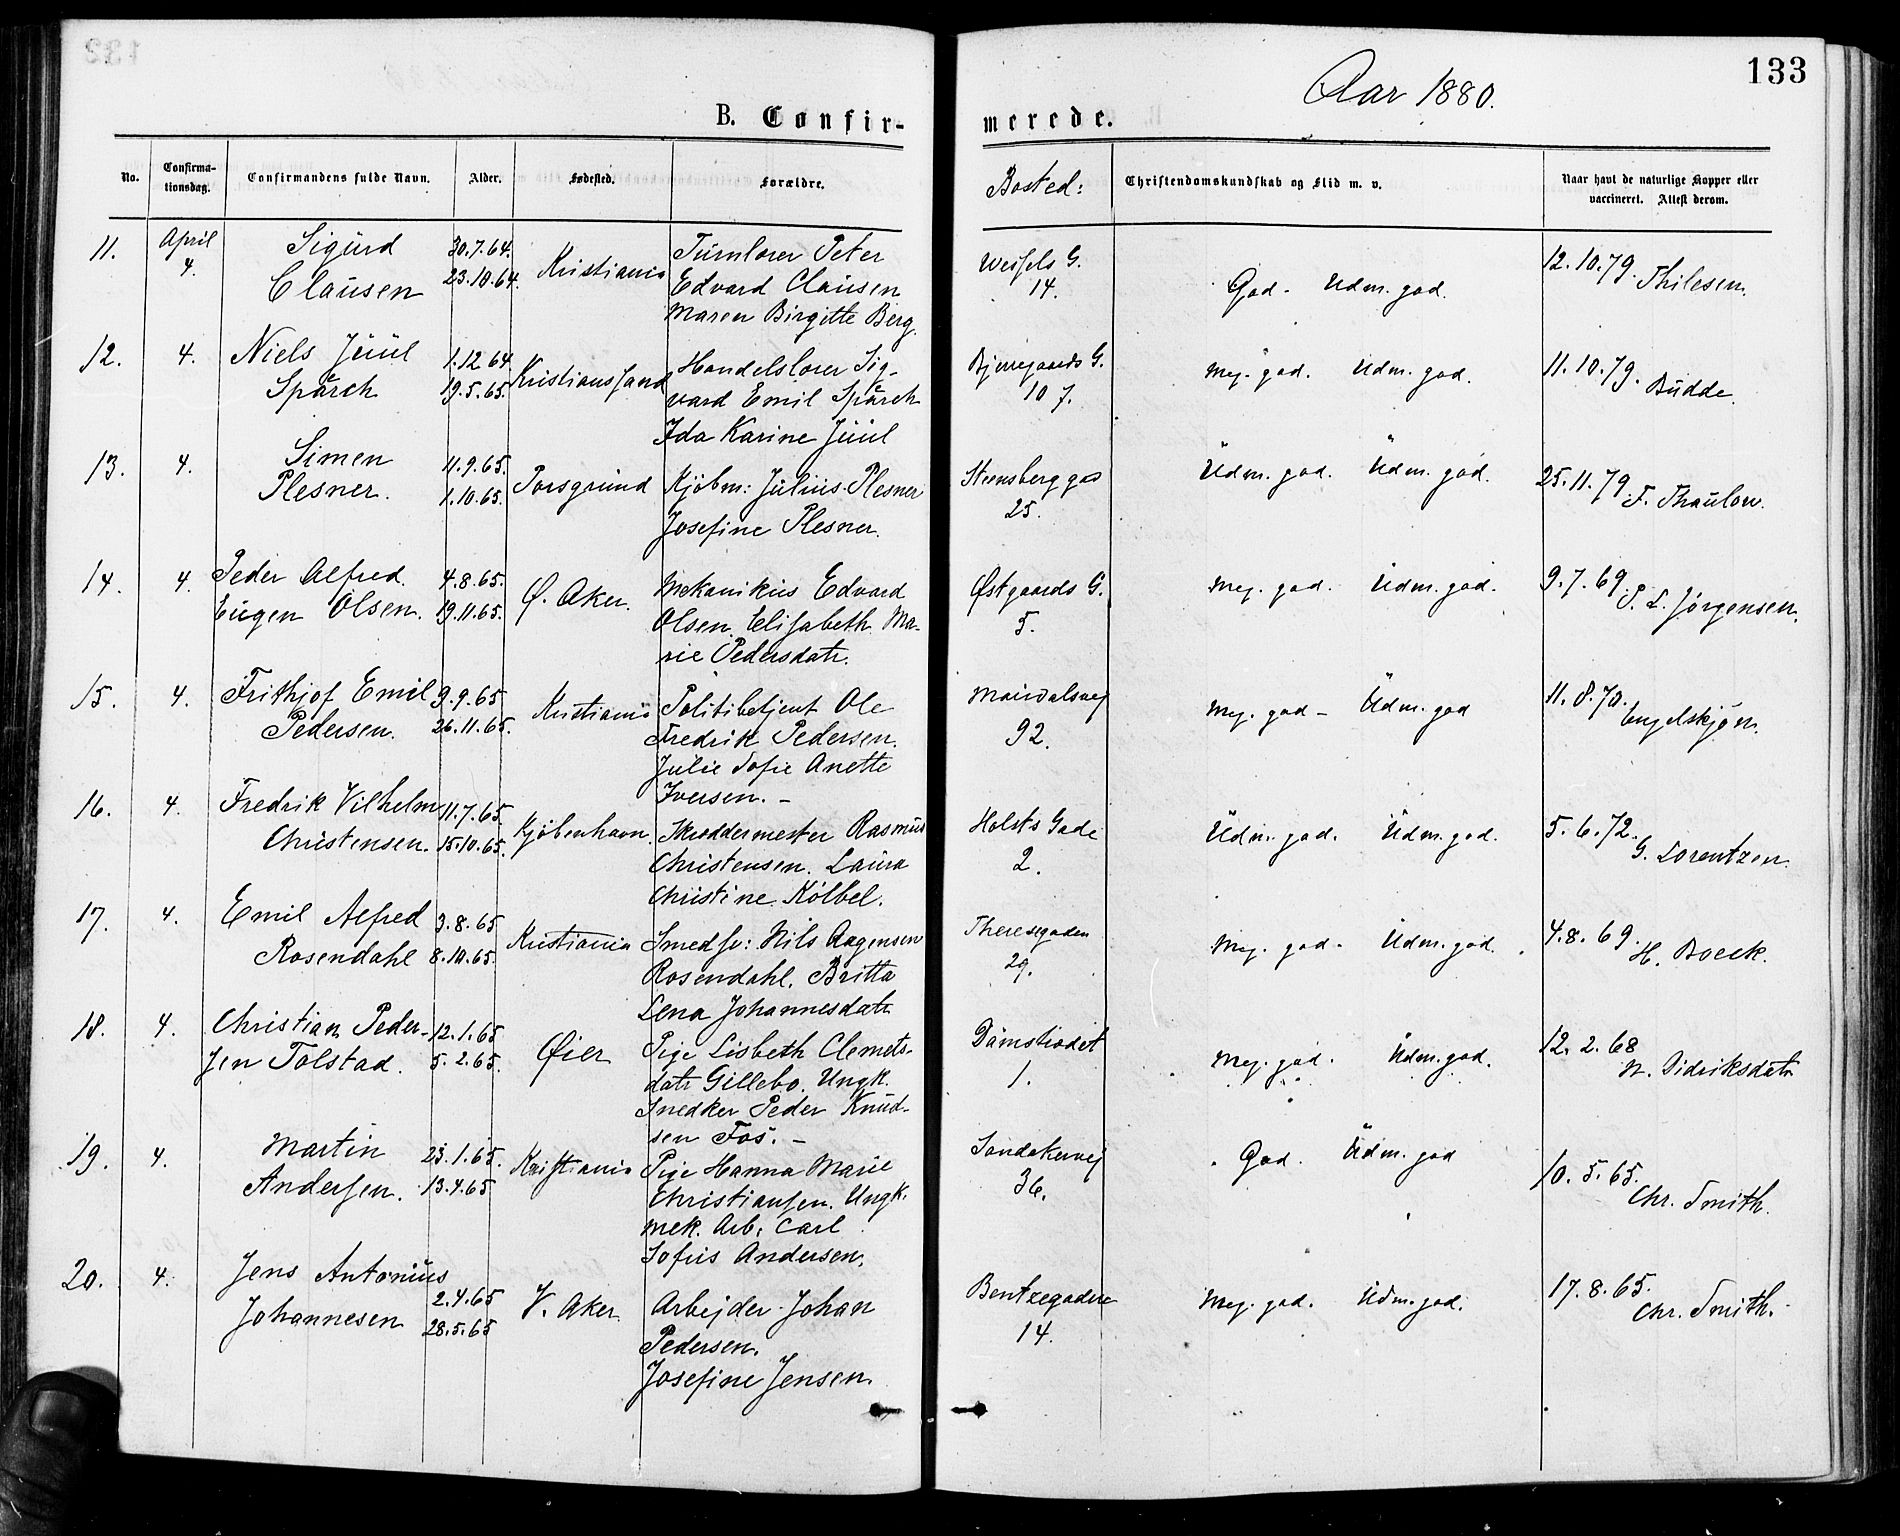 133
Aar 1880.
B. Confir-
merede.
No.
Confirma-
tionsdag.
Confirmandens fulde Navn.
Alder.
Fødested.
Forældre.
Bosted:
Christendomskundskab og Flid m. v.
Naar havt de naturlige Kopper eller
vaccineret. Attest derom.
11.
April
4.
Sigurd
Clausen
30.7.64.
23.10.64.
Kristiania
Turnlærer Peter
Edvard Clausen
Maren Birgitte Berg.
Wessels G.
14.
God. Udm. god.
12.10.79. Thilesen.
12.
4.
Niels Juul
Spärck
1.12 64.
19.5.65.
Kristianssand
Handelslærer Sig-
vard Emil Spärck
Ida Karine Juul
Bjerregaards G.
10 7.
Meg. god. Udm. god.
11.10.79. Budde.
13.
4.
Simen
Plesner.
11.9.65.
1.10.65.
Porsgrund
Kjøbm: Julius Plesner
Josefine Plesner.
Steensberg gad
25.
Udm. god. Udm. god.
25.11.79. F. Thaulow.
14.
4.
Peder Alfred
Eugen Olsen.
4.8.65.
19.11.65.
Ø. Aker.
Mekanikus Edvard
Olsen Elisabeth Ma-
rie Pedersdatr.
Østgaards G.
5.
Meg. god. Udm. god.
9.7.69. P. L. Jørgensen.
15.
4.
Frithjof Emil
Pedersen.
9.9.65
26.11.65.
Kristiania
Politibetjent Ole
Fredrik Pedersen.
Julie Sofie Anette
Iversen. -
Maridalsvej
92.
Meg. god - Udm. god
11.8.70. Engelskjøn.
16.
4.
Fredrik Vilhelm
Christensen.
11.7.65.
15.10.65.
Kjøbenhavn.
Skræddermester Rasmus
Christensen. Laura
Christine Kölbel.
Holsts Gade
2.
Udm. god. Udm. god.
5.6.72. G. Lorentzen.
17.
4.
Emil Alfred
Rosendahl
3.8.65
8.10.65.
Kristiania
Smedsv: Nils Aagensen
Rosendahl. Britta
Lena Johannesdatr
Theresegaden
29.
Meg. god. Udm. god.
4.8.69. H. Boeck.
18.
4.
Christian Peder-
sen Tolstad.
12.1.65
5.2.65.
Øier
Pige Lisbeth Clemets-
datr Gillebo. Ungk.
Snedker Peder Knud-
sen Fos. -
Damstrædet
1.
Meg. god. Udm. god.
12.2.68 N. Didriksdatr
19.
4.
Martin
Andersen.
23.1.65.
13.4.65
Kristiania
Pige Hanna Marie
Christiansen. Ungk.
Mek. Arb: Carl
Sofus Andersen.
Sandakervej
36.
God. Udm. god
10.5.65. Chr. Smith.
20.
4.
Jens Antonius
Johannesen
2.4.65
28.5.65
V. Aker
Arbejder Johan
Pedersen.
Josefine Jensen.
Bentzegaden
14.
Meg. god. Udm. god.
17.8.65. Chr. Smith.